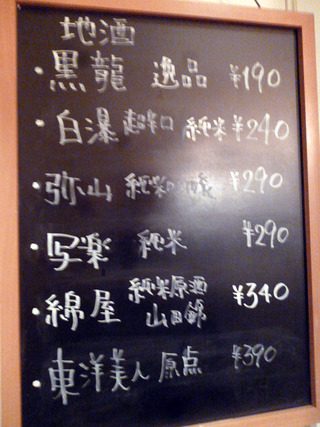 地酒
・黒龍 逸品 ¥190
・白瀑 超辛口 純米 ¥240
・弥山 純米吟醸 ¥290
・写楽 純米 ¥290
・綿屋 純米原酒 山田錦 ¥340
・東洋美人 原点 ¥390